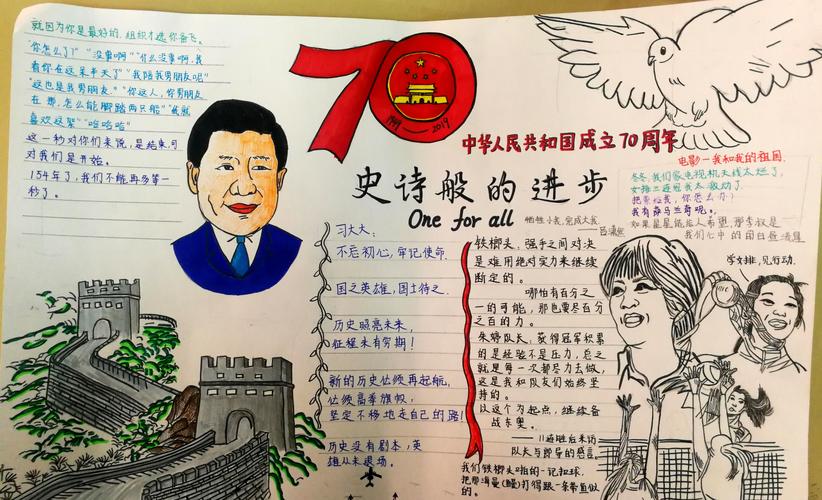 就因为你是最好的,组织才选你奋飞。
"你怎么了!""没事啊""什么没事啊,我
看你在这呆半天了""我陪我男朋友呢"
"这也是我男朋友。""你这人,你男朋友
在那,怎么能脚踏两只船""我就
喜欢这架""哈哈哈"
这一秒对你们来说,是结束,可
对我们是开始。
154年了,我们不能再多等一
秒了。
70
1949—2019
中华人民共和国成立70周年
史诗般的进步
One for all
牺牲小我,完成大我。
电影—我和我的祖国.
冬冬,我们家电视机天线太烂了,
女排三连冠我太激动了
把票给我,你怎么办)
我有
习大大:
不忘初心,牢记使命.
国之英雄,国士待之.
历史照亮未来,
征程未有穷期!
新的历史伫倾再起航,
伫倾高举旗帜,
坚定不移地走自己的路!
历史没有剧本,英
雄从未退场。
铁榔头,强手之间对决
是难用绝对实力来继续
断定的。
哪怕有百分之
一的可能,那也要尽百分
之百的力。
朱特队长,获得冠军积累
的是经验不是压力,总之
就是每一次都尽力去做,
这是我和队友们始终坚
持的。
以这个为起点,继续备
战东奥。
队长与郎导的感言。
我们铁榔头啪的一记扣球.
学女排,见行动.